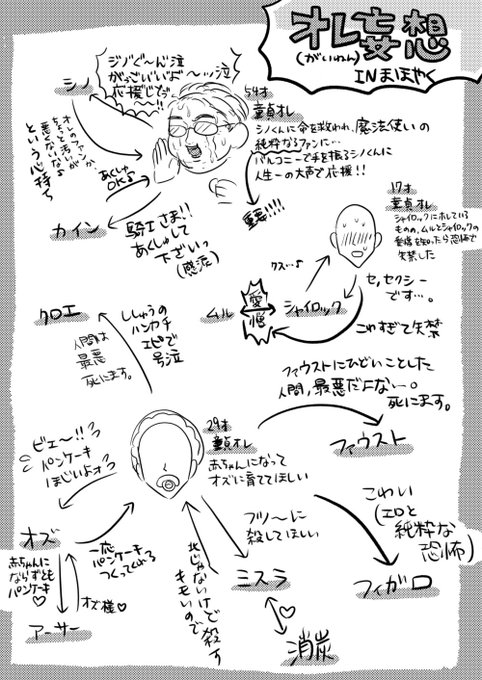 オレ妄想
(がいねん)
INまほやく
ジノぐ〜ん泣
がっごいいよ〜ッ泣
応援じでぅ〜
シノ
オレのファンか
悪くないな
という心持ち
あくしゅ
OKよ
カイン
騎士さま!!
あくしゅして
下ざいっ
(感涙)
54才
童貞オレ
シノくんに命を救われ、魔法使いの
純粋なるファンに…
バルコニーで手を振るシノくんに
人生一の大声で応援!!
重要!!!!
17才
童貞オレ
シャイロックにホレている
ものの、ムルとシャイロックの
愛憎を知ったら恐怖で
失禁した
クス…♪
ムル
愛憎
シャイロック
セ、セクシー
です…。
こわすぎて失禁
クロエ
ししゅうの
ハンカチ
エピで
号泣
人間は
最悪
死にます。
ファウストにひどいことした
人間、最悪だよな…。
死にます。
ファウスト
29才
童貞オレ
赤ちゃんになって
オズに育ててほしい
ビェ〜!!
パンケーキ
ほじいよォ
オズ
一応
パンケーキ
つくってくれる
赤ちゃんに
ならずとも
パンケーキ♡
オズ様♡
アーサー
北じゃないけど殺す
キモいので
フツ〜に
殺してほしい
ミスラ
消炭
こわい
(エロと
純粋な
恐怖)
フィガロ